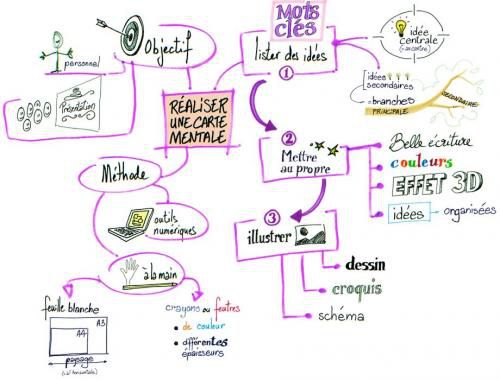 MOTS
CLÉS
lister des idées
①
idée
centrale
(= au centre)
idées
secondaires
= branches
PRINCIPALE
SECONDAIRE
Objectif
personnel
Présentation
RÉALISER
UNE CARTE
MENTALE
②
Mettre
au propre
Belle écriture
couleurs
EFFET 3D
idées → organisées
③
illustrer
dessin
croquis
schéma
Méthode
outils
numériques
à la main
feuille blanche
A3
A4
paysage
crayons ou feutres
• de couleur
• différentes
épaisseurs